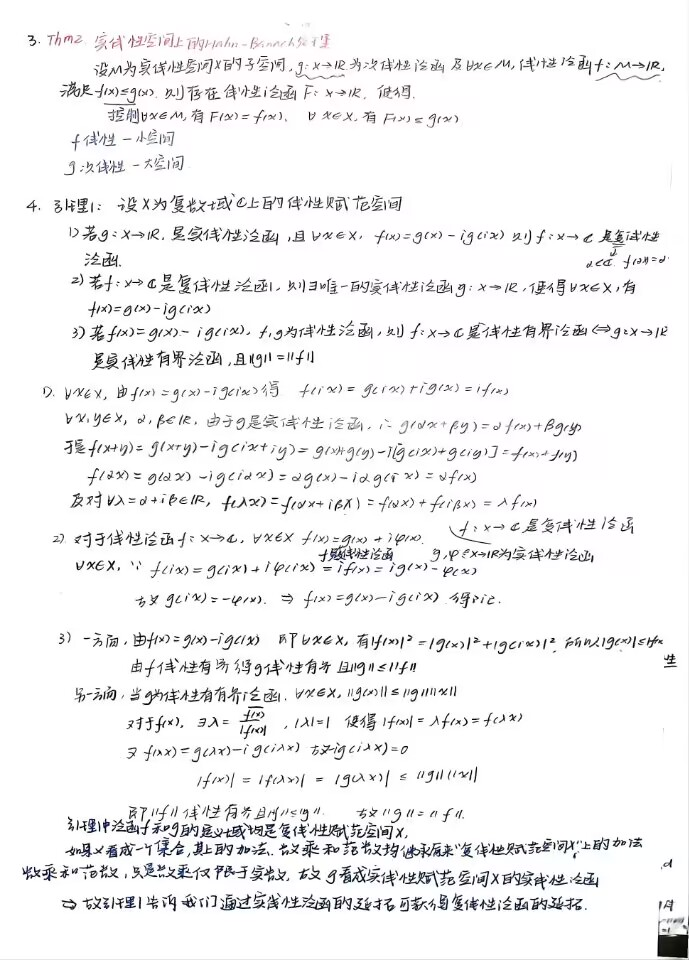 3. Thm2. 实线性空间上的Hahn-Banach定理
设M为实线性空间X的子空间, g: X→IR 为次线性泛函 及∀x∈M, 线性泛函 f: M→IR,
满足 f(x)≤g(x). 则存在线性泛函 F: X→IR, 使得.
控制 ∀x∈M, 有 F(x)=f(x). ∀x∈X, 有 F(x)≤g(x)
f 线性 — 小空间
g 次线性 — 大空间
4. 引理1: 设X为复数域ℂ上的线性赋范空间
1) 若g: X→IR, 是实线性泛函, 且∀x∈X, f(x)=g(x)-ig(ix) 则 f: X→ℂ 是复线性
泛函. α∈ℂ f(αx)=α·
2) 若f: X→ℂ是复线性泛函, 则∃唯一的实线性泛函 g: X→IR, 使得∀x∈X, 有
f(x)=g(x)-ig(ix)
3) 若f(x)=g(x)-ig(ix), f,g为线性泛函, 则 f: X→ℂ 是线性有界泛函 ⇔ g: X→IR
是实线性有界泛函, 且||g||=||f||
1). ∀x∈X, 由f(x)=g(x)-ig(ix)得 f(ix)=g(ix)+ig(x)=if(x)
∀x,y∈X, α,β∈IR, 由于g是实线性泛函, ∴ g(αx+βy)=αf(x)+βg(y)
于是f(x+y)=g(x+y)-ig(ix+iy)=g(x)+g(y)-i[g(ix)+g(iy)]=f(x)+f(y)
f(αx)=g(αx)-ig(iαx)=αg(x)-iαg(ix)=αf(x)
及对∀λ=α+iβ∈IR, f(λx)=f(αx+iβx)=f(αx)+f(iβx)=λf(x)
f: X→ℂ 是复线性泛函
2) 对于线性泛函f: X→ℂ, ∀x∈X f(x)=g(x)+iφ(x).
f是线性泛函 g,φ: X→IR为实线性泛函
∀x∈X, ∵ f(ix)=g(ix)+iφ(ix)=if(x)=ig(x)-φ(x)
故 g(ix)=-φ(x). ⇒ f(x)=g(x)-ig(ix). 得证.
3) 一方面, 由f(x)=g(x)-ig(ix) 即∀x∈X, 有|f(x)|²=|g(x)|²+|g(ix)|². 所以|g(x)|≤|f(x)
由f线性有界得g线性有界且||g||≤||f||
另一方面, 当g为线性有有界泛函. ∀x∈X, ||g(x)||≤||g||||x||
对于f(x), ∃λ=f(x)/|f(x)|, |λ|=1 使得|f(x)|=λf(x)=f(λx)
又 f(λx)=g(λx)-ig(iλx) 故ig(iλx)=0
|f(x)|=|f(λx)|=|g(λx)|≤||g||||x||
即||f||线性有界且||f||≤||g||. 故||g||=||f||.
引理中泛函f和g的定义域均是复线性赋范空间X,
如果X看成一个集合, 其上的加法、数乘和范数均继承原来"复线性赋范空间X"上的加法
数乘和范数, 只是数乘仅限于实数, 故g看成实线性赋范空间X的实线性泛函
⇒ 故引理1告诉我们通过实线性泛函的延拓可获得复线性泛函的延拓.